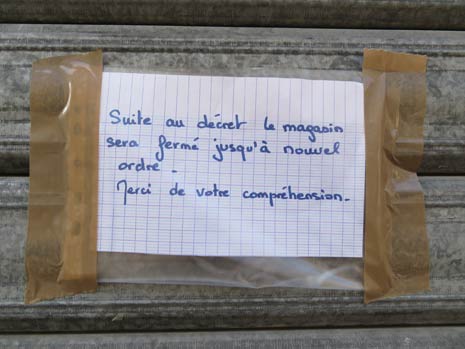 Suite au décret le magasin
sera fermé jusqu'à nouvel
ordre.
Merci de votre compréhension.